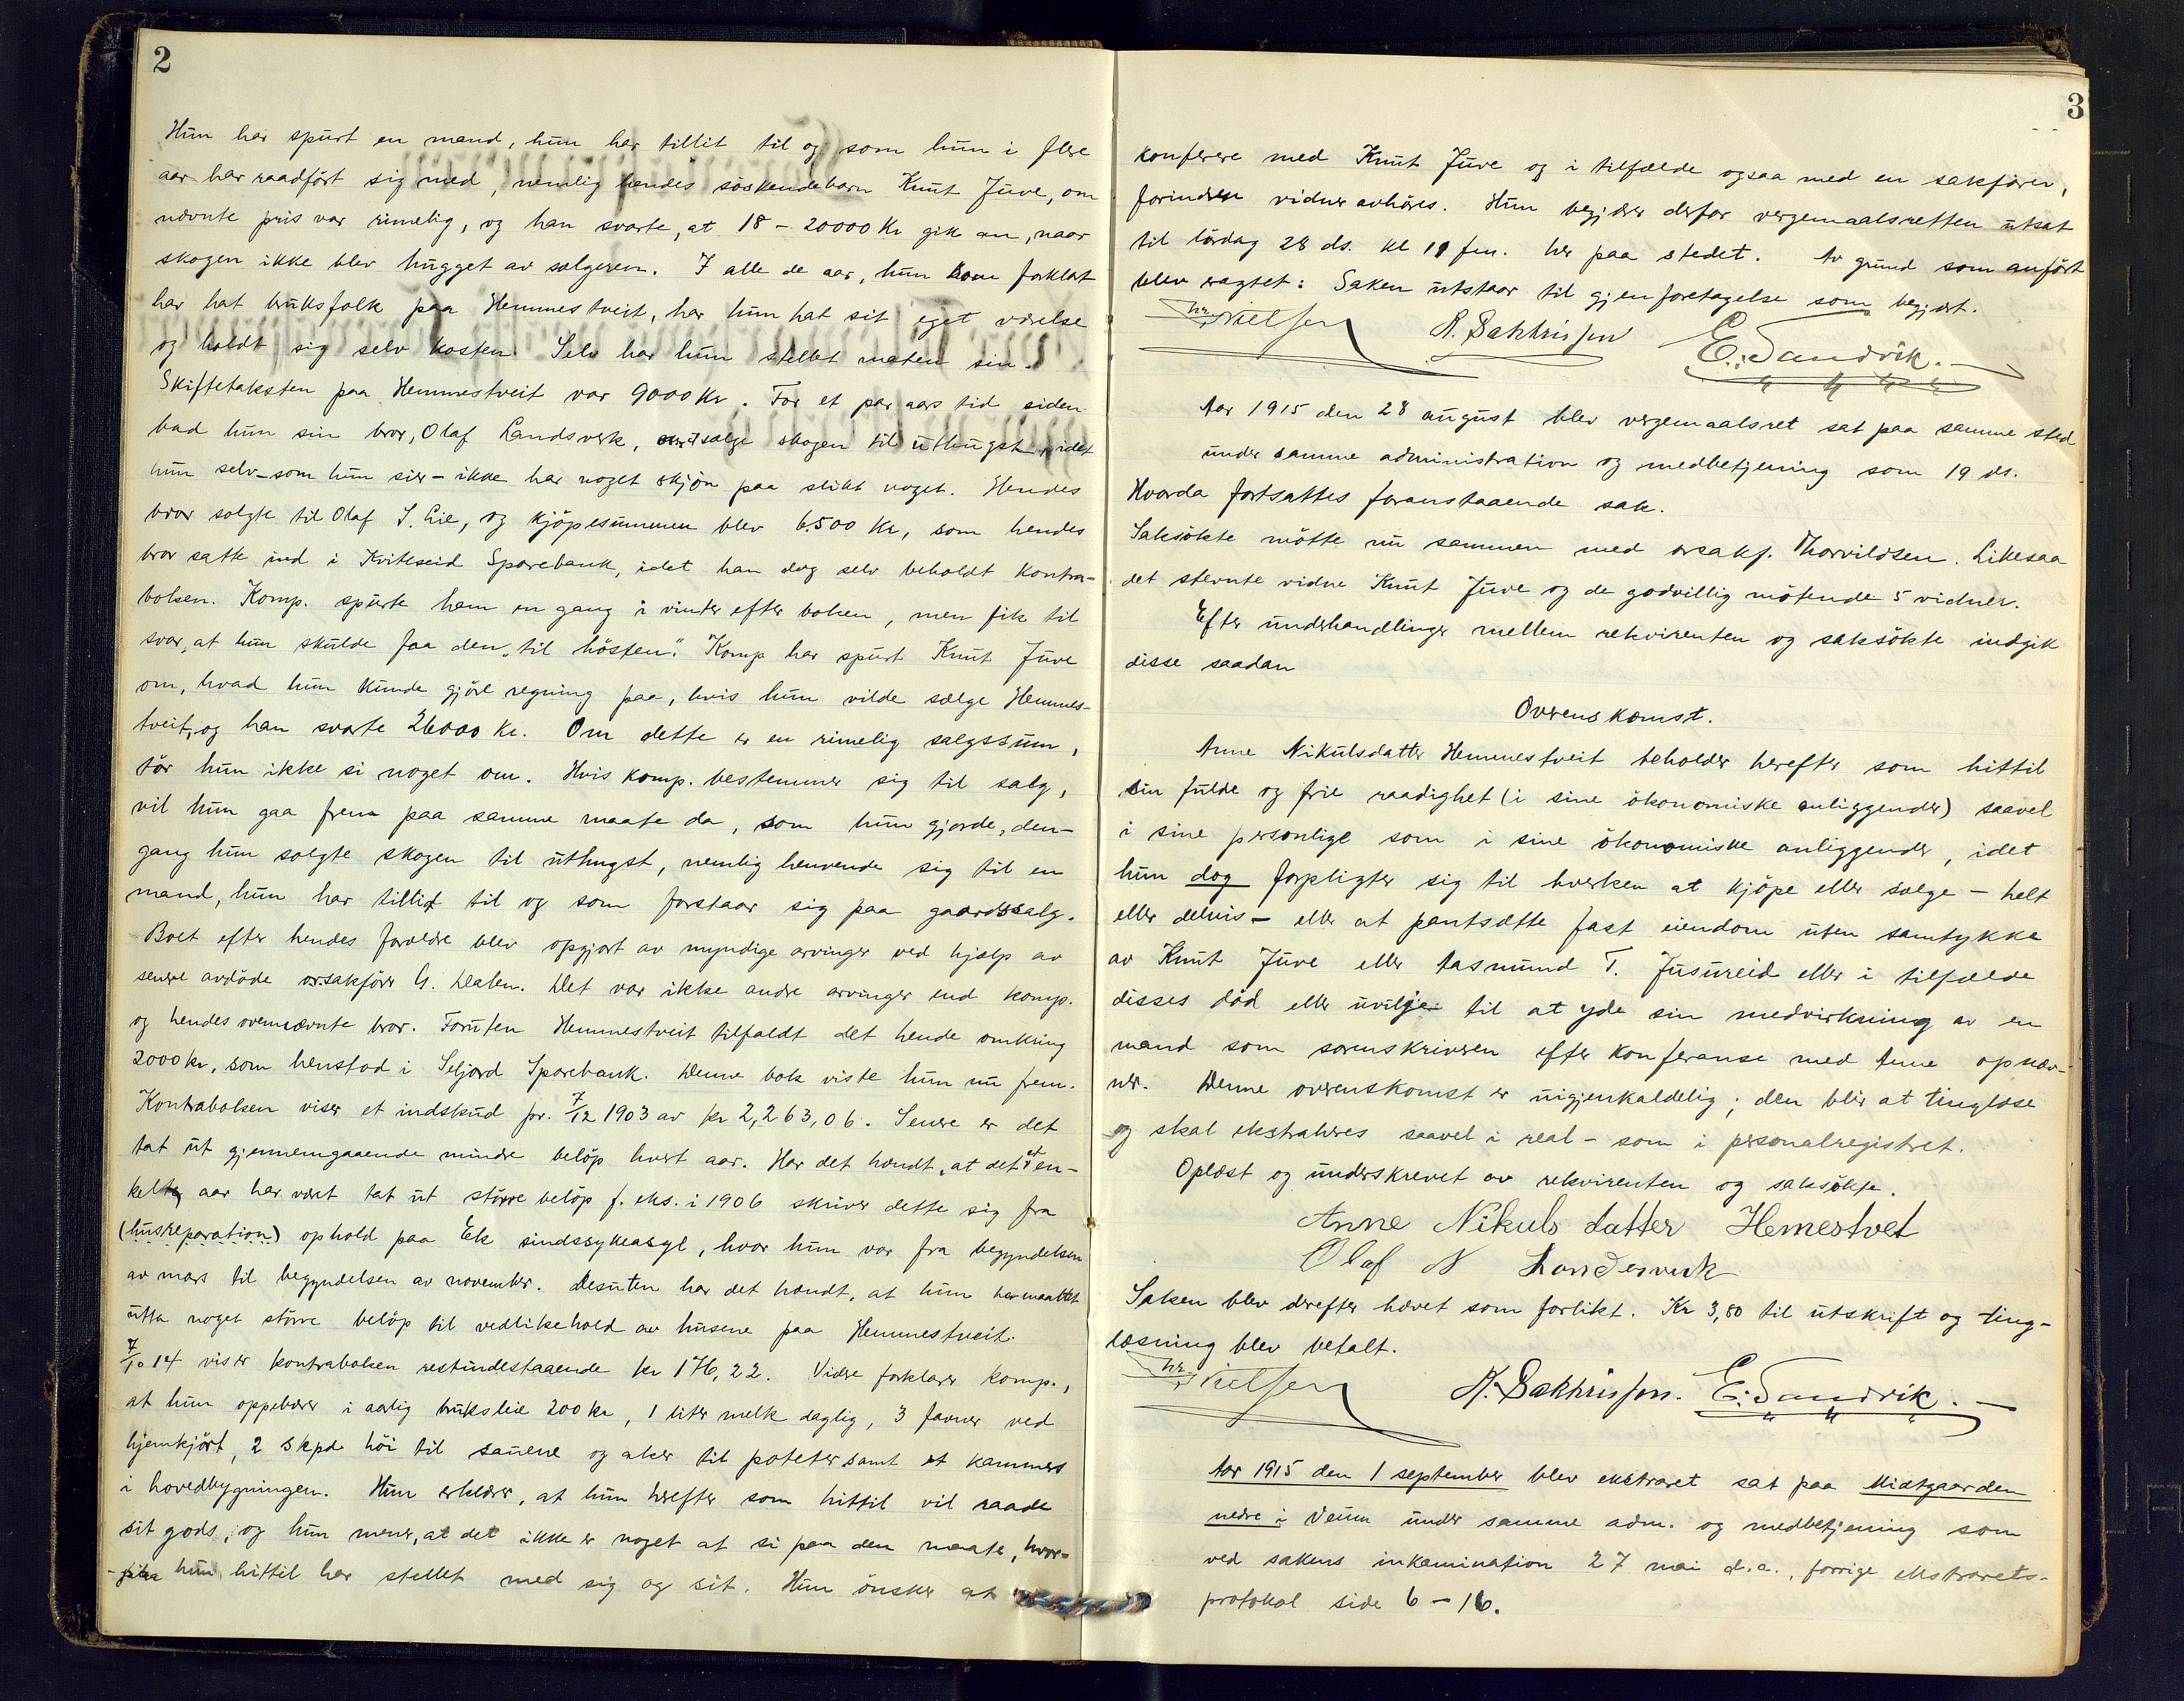 2
Hun har spurt en mand, hun har tillit til og som hun i flere
aar har raadført sig med, nemlig hendes søskendebarn Knut Juve, om
nævnte pris var rimelig, og han svarte, at 18 - 20000 Kr gik an, naar
skogen ikke blev hugget av sælgeren. I alle de aar, hun som forklat
har hat bruksfolk paa Hemmestveit, har hun hat sit eget værelse
og holdt sig selv kosten. Selv har hun stellet maten sin.
Skiftetaksten paa Hemmestveit var 9000 Kr. For et par aars tid siden
bad hun sin bror, Olaf Landsverk, sælge skogen til uthugst, idet
hun selv - som hun sier - ikke har noget skjøn paa slikt noget. Hendes
bror solgte til Olaf S. Lie, og kjøpesummen blev 6.500 Kr, som hendes
bror satte ind i Kviteseid Sparebank, idet han dog selv beholdt kontra-
boken. Komp. spurte ham en gang i vinter efter boken, men fik til
svar, at hun skulde faa den „til høsten". Komp har spurt Knut Juve
om, hvad hun kunde gjøre regning paa, hvis hun vilde sælge Hemmes-
tveit, og han svarte 26000 Kr. Om dette er en rimelig salgssum,
tør hun ikke si noget om. Hvis komp. bestemmer sig til salg,
vil hun gaa frem paa samme maate da, som hun gjorde, den-
gang hun solgte skogen til uthugst, nemlig henvende sig til en
mand, hun har tillid til og som forstaar sig paa gaardssalg.
Boet efter hendes forældre blev opgjort av myndige arvinger ved hjælp av
senere avdøde orsakfører G. Dalen. Det var ikke andre arvinger end komp.
og hendes ovennævnte bror. Foruten Hemmestveit tilfaldt det hende omkring
2000 kr, som henstod i Seljord Sparebank. Denne bok viste hun nu frem.
Kontraboken viser et indskud pr. 7/12 1903 av kr 2,263,06. Senere er det
tat ut gjennemgaaende mindre beløp hvert aar. Har det hændt, at det et en-
kelte aar har været tat ut større beløp f. eks. i 1906 skriver dette sig fra
(husreparation) ophold paa Ek sindssykeasyl, hvor hun var fra begyndelsen
av mars til begyndelsen av november. Desuten har det hændt, at hun har maattet
utta noget større beløp til vedlikehold av husene paa Hemmestveit.
7/10 14 viser kontraboken restindestaaende kr 176,22. Videre forklarer komp.,
at hun oppebærer i aarlig bruksleie 200 kr, 1 liter melk daglig, 3 favner ved
hjemkjørt, 2 skpd. høi til sauene og aker til poteter samt et kammers
i hovedbygningen. Hun erklærer, at hun herefter som hittil vil raade
sit gods, og hun mener, at det ikke er noget at si paa den maate, hvor-
paa hun hittil har stellet med sig og sit. Hun ønsker at
3
konferere med Knut Juve og i tilfælde ogsaa med en sakfører,
forinden vidner avhøres. Hun begjærer derfor vergemaalsretten utsat
til lørdag 28 ds. kl 11 fm. her paa stedet. Av grund som anført
blev eragtet: Saken utstaar til gjenforetagelse som begjært.
Nielsen K. Sakkrisson E. Sandvik.
Aar 1915 den 28 august blev vergemaalsret sat paa samme sted
under samme administration og medbetjening som 19 ds.
Hvorda fortsattes foranstaaende sak.
Saksøkte møtte nu sammen med orsakf. Thorvildsen. Likesaa
det stevnte vidne Knut Juve og de godvillig møtende 5 vidner.
Efter underhandlinger mellem rekvirenten og saksøkte indgik
disse saadan
Overenskomst.
Anne Nikulsdatter Hemmestveit beholder herefter som hittil
sin fulde og frie raadighet (i sine økonomiske anliggender) saavel
i sine personlige som i sine økonomiske anliggender, idet
hun dog forpligter sig til hverken at kjøpe eller sælge - helt
eller delvis - eller at pantsætte fast eiendom uten samtykke
av Knut Juve eller Aasmund T. Jusureid eller i tilfælde
disses død eller uvilje til at yde sin medvirkning av en
mand som sorenskriveren efter konferanse med Anne opnæv-
ner. Denne overenskomst er uigjenkaldelig; den blir at tinglæse
og skal ekstraheres saavel i real- som i personalregistret.
Oplæst og underskrevet av rekvirenten og saksøkte.
Anne Nikuls datter Hemestvet
Olaf N Landsverk
Saken blev derefter hævet som forlikt. Kr 3,80 til utskrift og ting-
læsning blev betalt.
Nielsen K. Sakkrisson. E. Sandvik.
Aar 1915 den 1 september blev ekstraret sat paa Midtgaarden
nedre i Veum under samme adm. og medbetjening som
ved sakens inkamination 27 mai d.a., forrige ekstrarets-
protokol side 6 - 16.